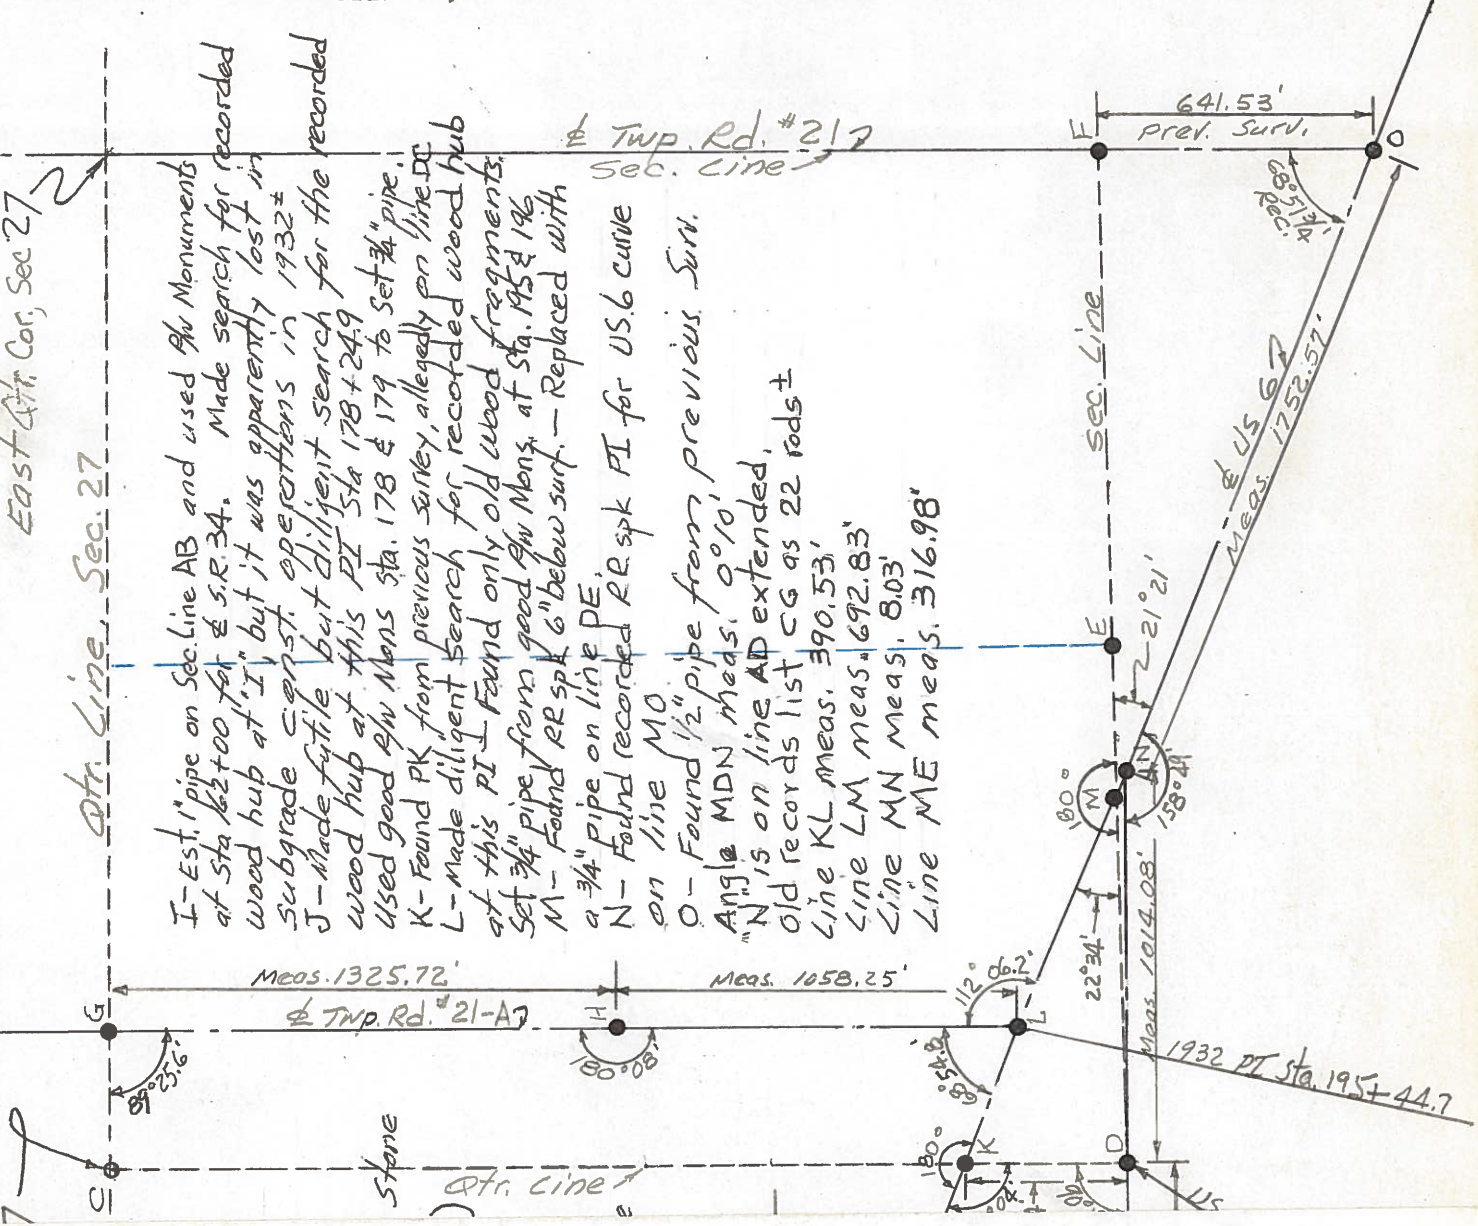 East Qtr. Cor., Sec 27
Qtr. Line, Sec. 27
I-Est. 1" pipe on Sec. Line AB and used R/W Monuments
at Sta 162+00 for ⅊ S.R. 34. Made search for recorded
wood hub at "I" but it was apparently lost in
subgrade const. operations in 1932±
J-Made futile but diligent search for the recorded
wood hub at this PI Sta 178+24.9
Used good R/W Mons Sta. 178 & 179 to Set ¾" pipe.
K-Found PK from previous survey, allegedly on line DC
L-Made diligent search for recorded wood hub
at this PI - Found only old wood fragments,
Set ¾" pipe from good R/W Mons. at Sta. 195 & 196
M- Found RR spk 6" below surf. - Replaced with
a ¾" pipe on line DE.
N- Found recorded RR spk PI for US.6 curve
on line MO
O- Found ½" pipe from previous Surv.
Angle MDN meas. 0°01'
"N" is on line AD extended.
Old records list CG as 22 rods±
Line KL meas. 390.53'
Line LM meas. 692.83'
Line MN meas. 8.03'
Line ME meas. 316.98'
℄ Twp. Rd. #21
Sec. Line
F
641.53'
Prev. Surv.
O
68°51¾'
Rec.
Sec. Line
℄ US 6
Meas. 1752.57'
E
21°21'
N
M
180°
158°49'
22°34'
Meas. 1014.08'
G
Meas. 1325.72'
℄ Twp. Rd. #21-A
H
Meas. 1058.25'
89°25.6'
180°08'
112°
06.2'
L
68°54.8'
1932 PI Sta. 195+44.7
C
Stone
Qtr. Line
180°
K
D
US